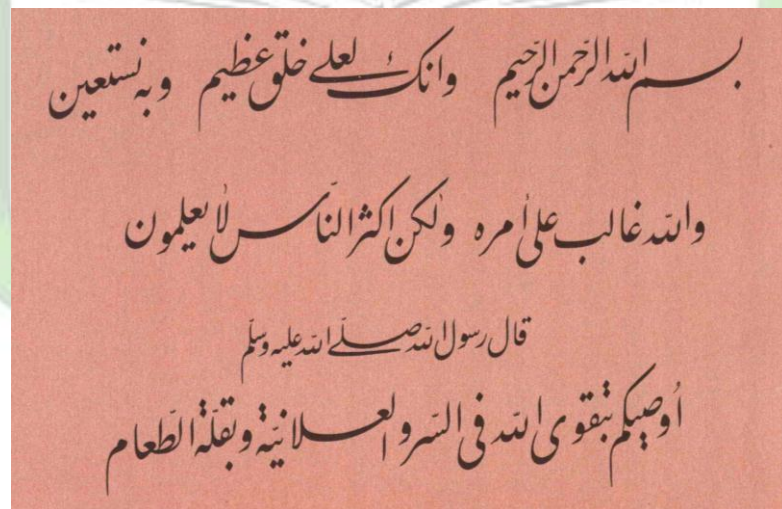 بسم الله الرحمن الرحيم وانك لعلى خلق عظيم وبه نستعين
والله غالب على أمره ولكن اكثر الناس لا يعلمون
قال رسول الله صلى الله عليه وسلم
أوصيكم بتقوى الله في السر والعلانية وبقلة الطعام